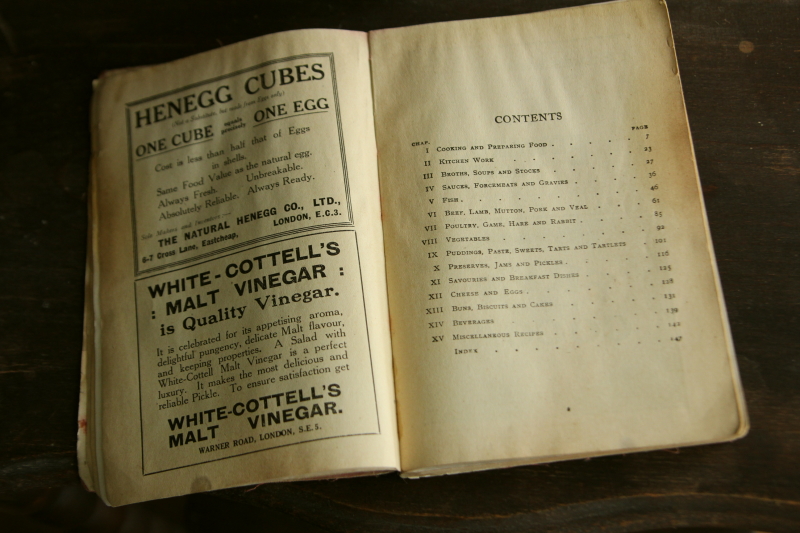 HENEGG CUBES
Not a Substitute, but made from Eggs only.
ONE CUBE equals precisely ONE EGG
Cost is less than half that of Eggs
in shells.
Same Food Value as the natural egg.
Always Fresh. Unbreakable.
Absolutely Reliable. Always Ready.
Sole Makers and Inventors
THE NATURAL HENEGG CO., LTD.,
6-7 Cross Lane, Eastcheap, LONDON, E.C.3.
WHITE-COTTELL'S
: MALT VINEGAR :
is Quality Vinegar.
It is celebrated for its appetising aroma,
delightful pungency, delicate Malt flavour,
and keeping properties. A Salad with
White-Cottell Malt Vinegar is a perfect
luxury. It makes the most delicious and
reliable Pickle. To ensure satisfaction get
WHITE-COTTELL'S
MALT VINEGAR.
WARNER ROAD, LONDON, S.E.5.
CONTENTS
CHAP. PAGE
I COOKING AND PREPARING FOOD . . . . 7
II KITCHEN WORK . . . . 23
III BROTHS, SOUPS AND STOCKS . . . . 27
IV SAUCES, FORCEMEATS AND GRAVIES . . . . 36
V FISH . . . . 46
VI BEEF, LAMB, MUTTON, PORK AND VEAL . . . . 61
VII POULTRY, GAME, HARE AND RABBIT . . . . 85
VIII VEGETABLES . . . . 92
IX PUDDINGS, PASTE, SWEETS, TARTS AND TARTLETS 101
X PRESERVES, JAMS AND PICKLES . . . . 116
XI SAVOURIES AND BREAKFAST DISHES . . . . 125
XII CHEESE AND EGGS . . . . 128
XIII BUNS, BISCUITS AND CAKES . . . . 132
XIV BEVERAGES . . . . 139
XV MISCELLANEOUS RECIPES . . . . 142
INDEX . . . . 147